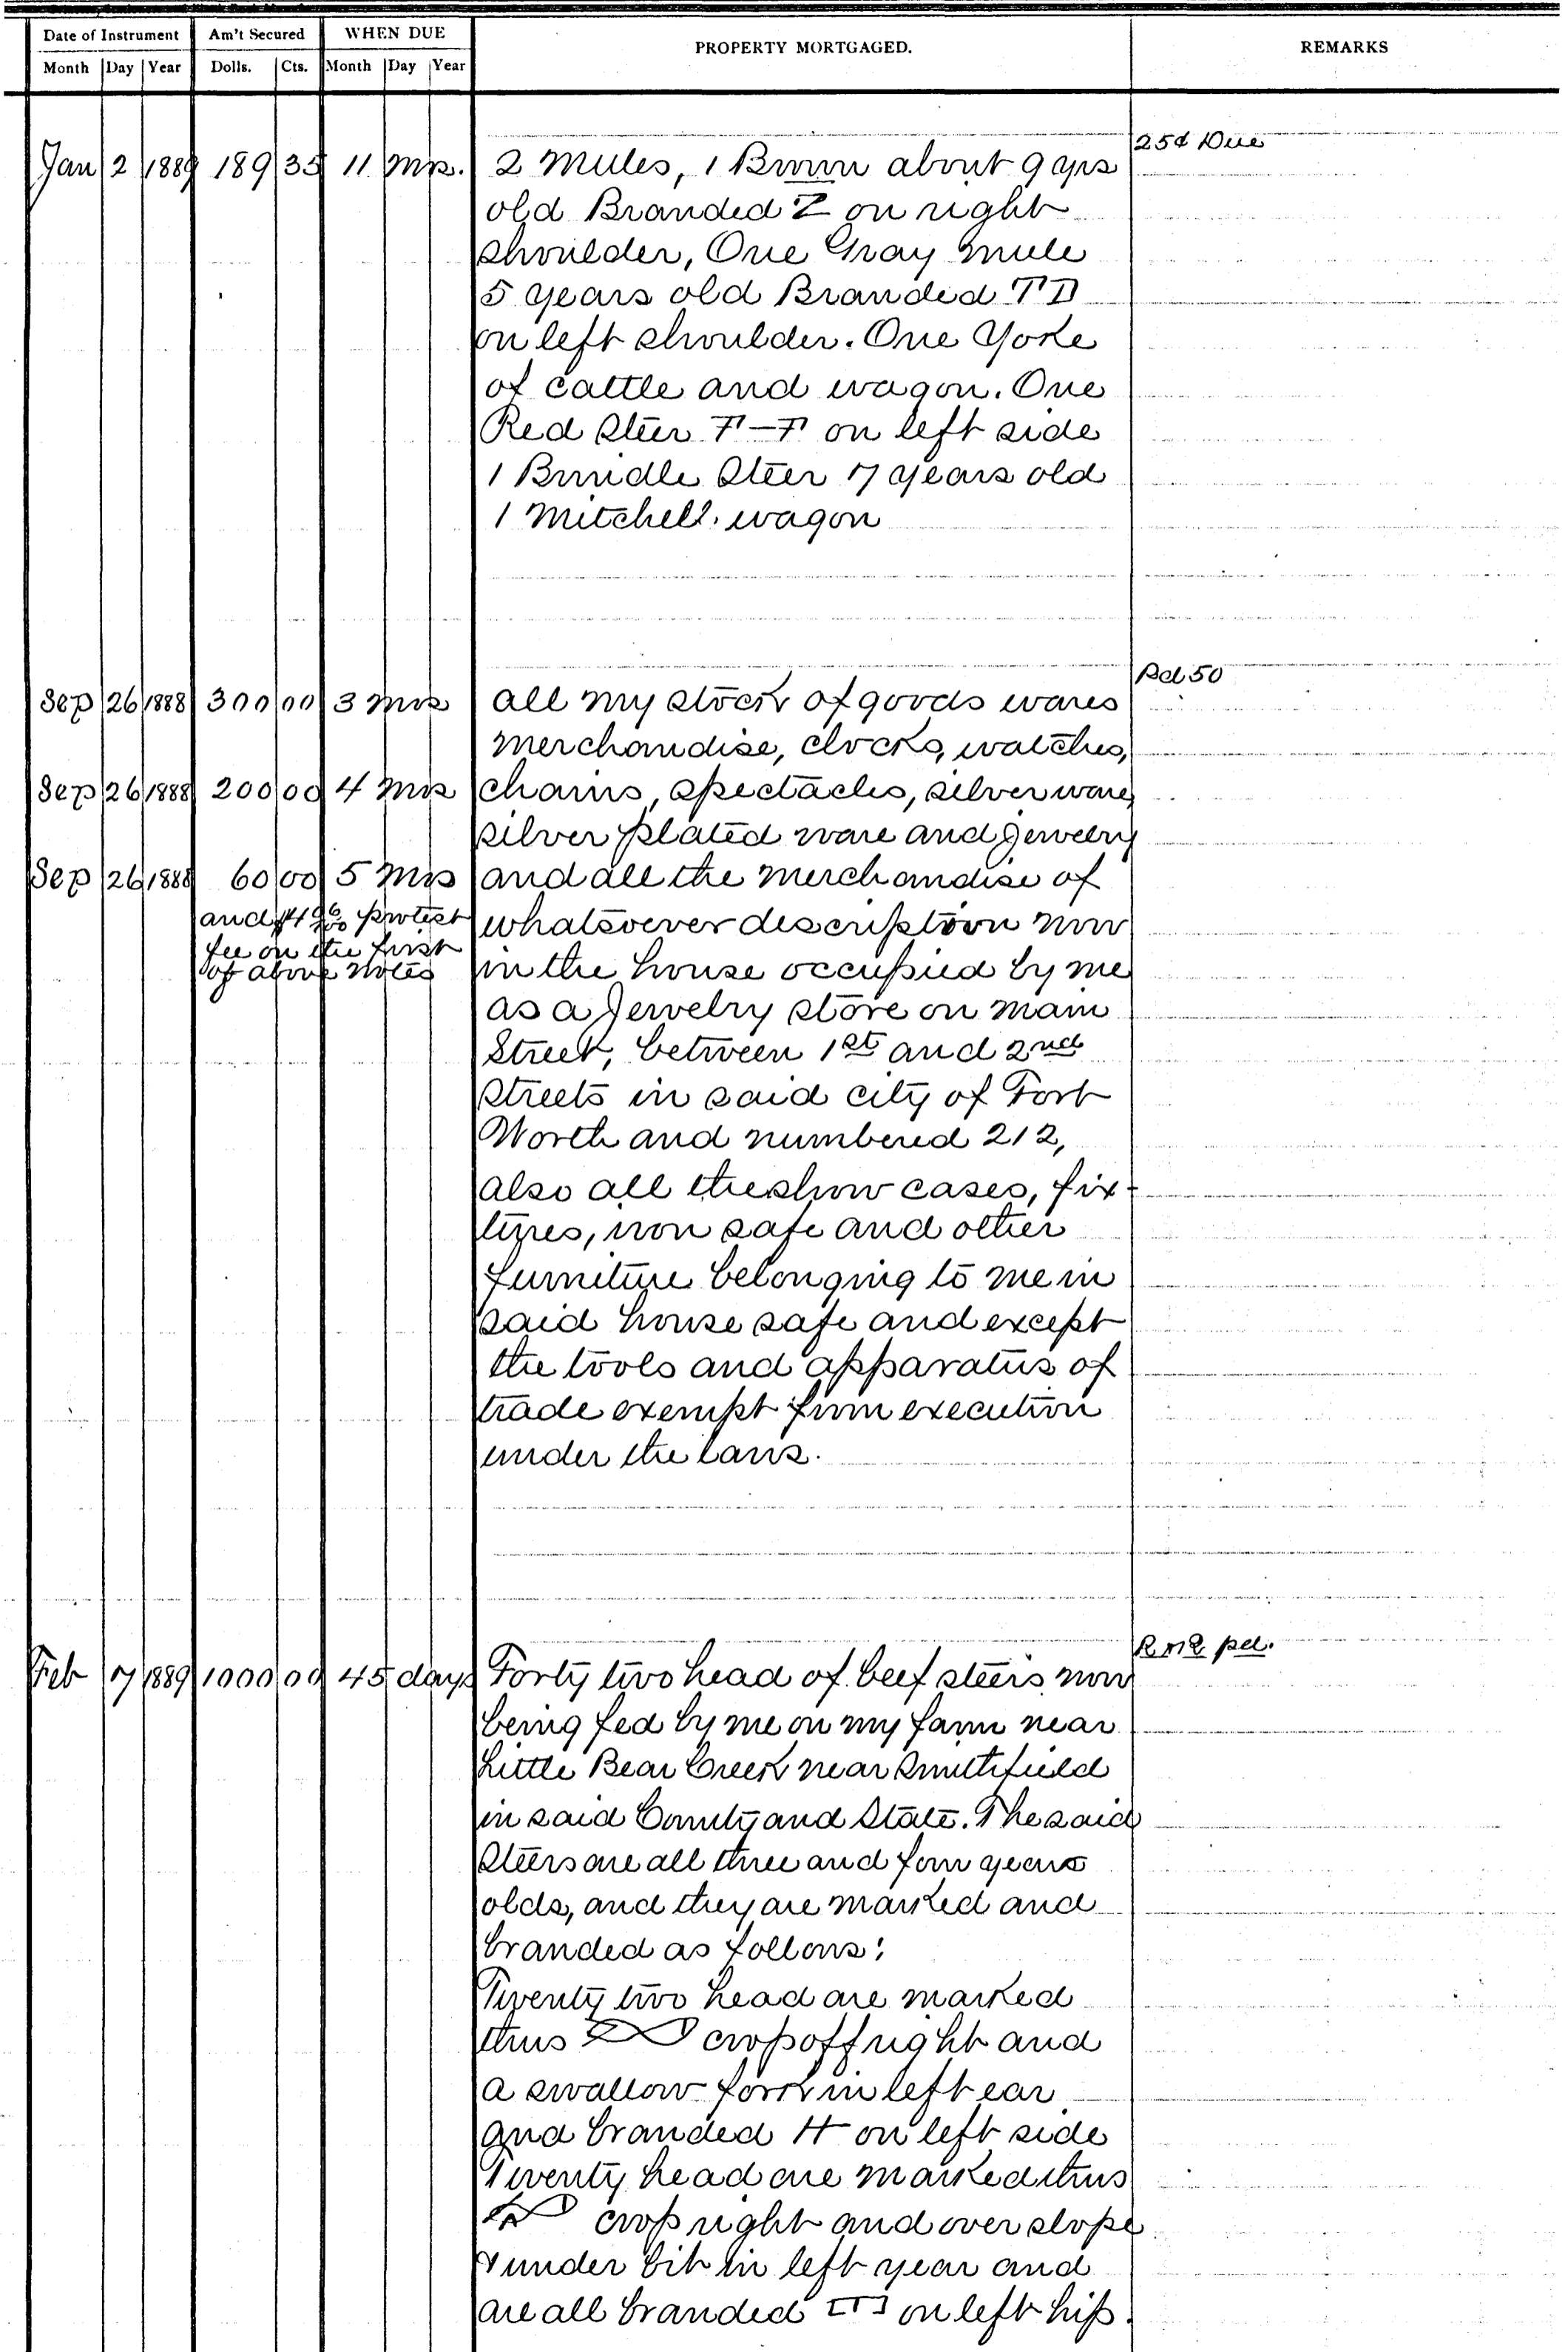 Date of Instrument Am't Secured WHEN DUE PROPERTY MORTGAGED. REMARKS
Month Day Year Dolls. Cts. Month Day Year
25¢ Due
Jan 2 1889 189 35 11 Mos. 2 Mules, 1 Brown about 9 yrs
old Branded Z on right
shoulder, One Gray mule
5 years old Branded TD
on left shoulder. One Yoke
of cattle and wagon. One
Red Steer F-F on left side
1 Brindle Steer 7 years old
1 Mitchell wagon
Pd 50
Sep 26 1888 300 00 3 Mos all my stock of goods wares
merchandise, clocks, watches,
Sep 26 1888 200 00 4 Mos chains, spectacles, silver ware,
silver plated ware and jewelry
Sep 26 1888 60 00 5 Mos and all the merchandise of
and protest whatsoever description now
fee on the first
of above notes in the house occupied by me
as a Jewelry store on main
Street, between 1st and 2nd
streets in said city of Fort
Worth and numbered 212,
also all the show cases, fix-
tures, iron safe and other
furniture belonging to me in
said house safe and except
the tools and apparatus of
trade exempt from execution
under the laws.
pd.
Feb 7 1889 1000 00 45 days Forty two head of beef steers now
being fed by me on my farm near
Little Bear Creek near Smithfield
in said County and State. The said
Steers are all three and four years
olds, and they are marked and
branded as follows:
Twenty two head are marked
thus crop off right and
a swallow fork in left ear
and branded H on left side
Twenty head are marked thus
crop right and over slope
& under bit in left year and
are all branded on left hip.